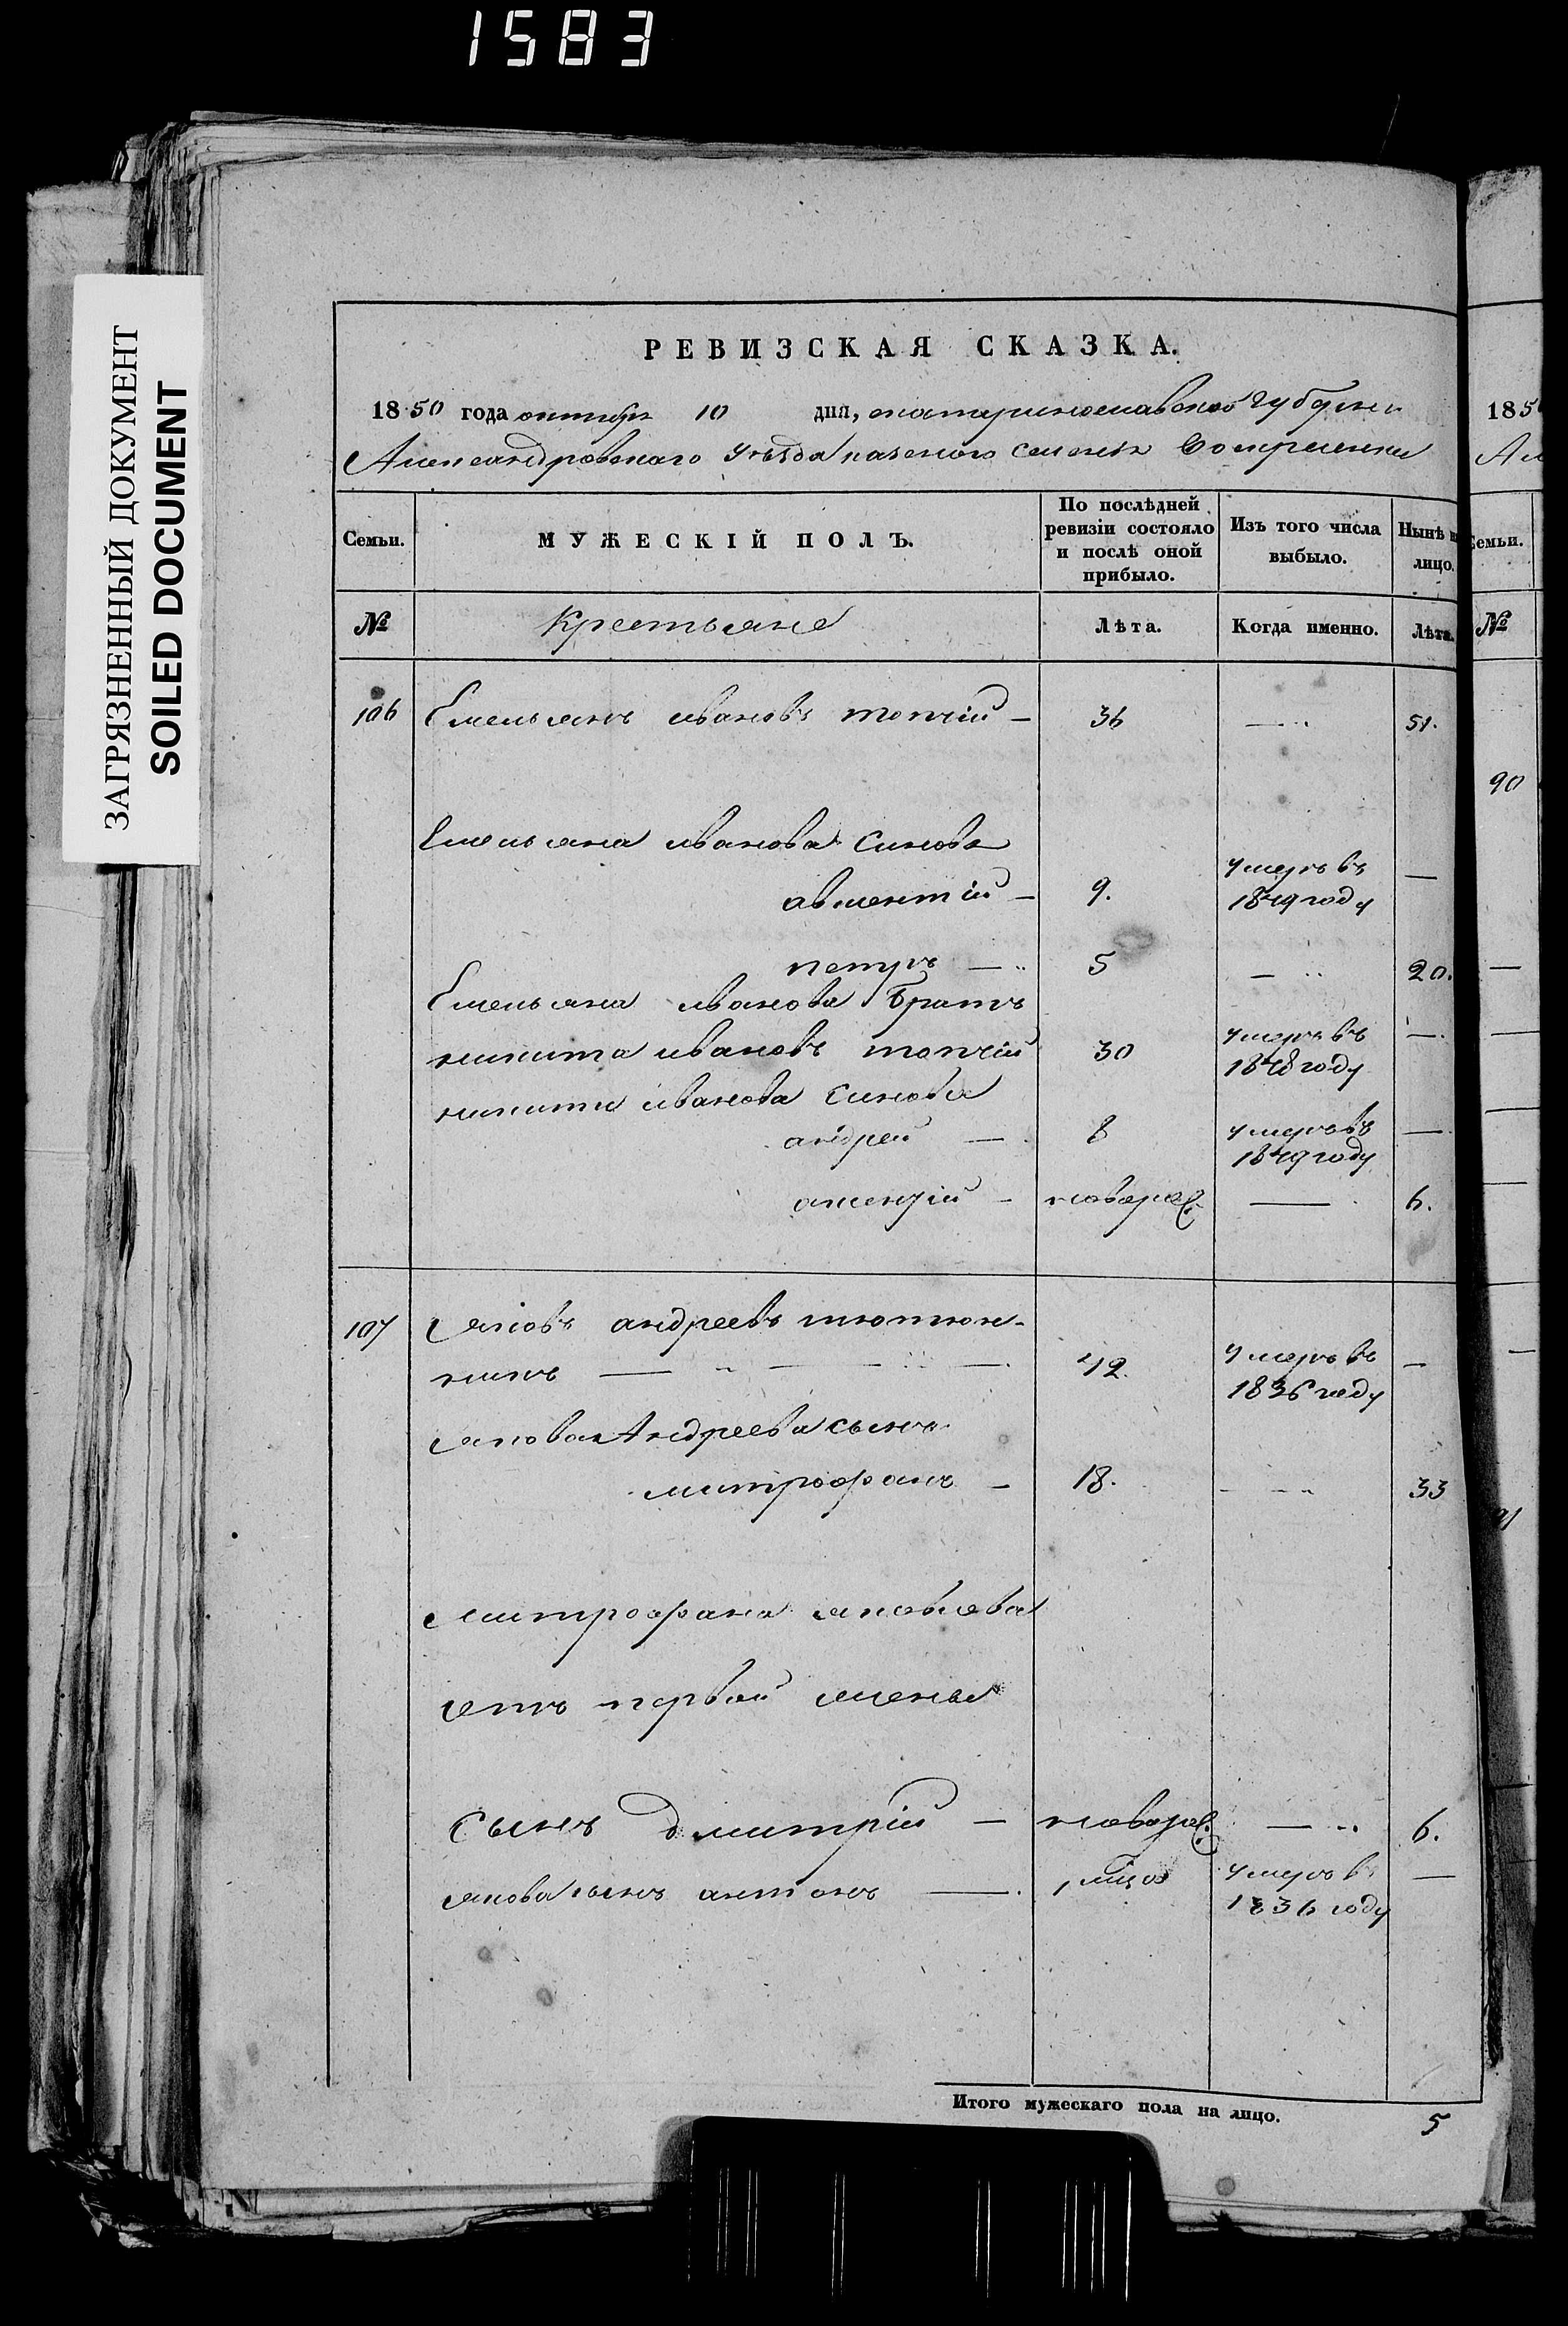 1583
ЗАГРЯЗНЕННЫЙ ДОКУМЕНТ
SOILED DOCUMENT
РЕВИЗСКАЯ СКАЗКА.
1850 года октября 10 дня, екатеринославской Губернии
Александровскаго уѣзда казеного селенія
Семьи. МУЖЕСКІЙ ПОЛЪ. По послѣдней ревизіи состояло и послѣ оной прибыло. Изъ того числа выбыло. Нынѣ на лицо.
№ Крестьяне Лѣта. Когда именно. Лѣта.
106 Емельянъ ивановъ топчій — 36 — 51.
Емельяна иванова синовя
авлентій — 9. умеръ въ 1849 году —
петръ — 5 — 20.
Емельяна иванова братъ
никита ивановъ топчій 30 умеръ въ 1848 году —
никити иванова синовя
андрей — 8 умеръ въ 1849 году —
алексѣй — новорож — 6.
107 Яковъ андреевъ тютюн-
никъ — 42. умеръ въ 1836 году —
якова Андреева сынъ
митрофанъ — 18. — 33
митрофана яковлева
отъ первой жены
сынъ дмитрій — новорож — 6.
якова сынъ антонъ — 1 мѣся умеръ въ 1836 году —
Итого мужескаго пола на лицо. 5
185
Ал
Семьи.
№
90
91